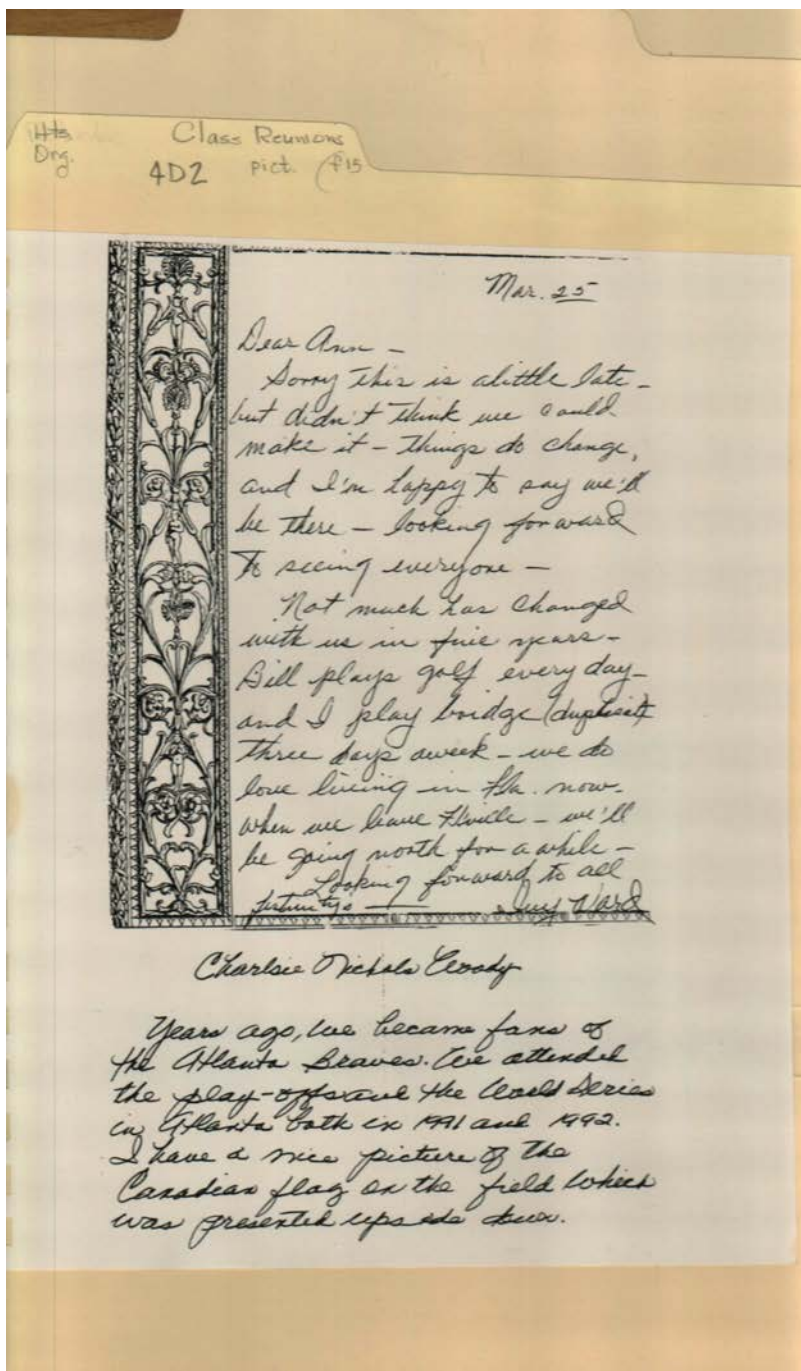 Hts.
Org.
Class Reunions
4D2 pict.
Mar. 25
Dear Ann –
Sorry this is alittle late –
but didn't think we could
make it – things do change,
and I'm happy to say we'll
be there – looking forward
to seeing everyone –
Not much has changed
with us in five years –
Bill plays golf every day –
and I play bridge (duplicate)
three days aweek – we do
love living in Fla. now –
when we leave H'ville – we'll
be going north for a while –
Looking forward to all
festivitys – Ward
Charlsie Nichols Woody
Years ago, we became fans of
the Atlanta Braves. We attended
the play-offs and the World Series
in Atlanta both in 1991 and 1992.
I have a nice picture of the
Canadian flag on the field which
was presented upside down.